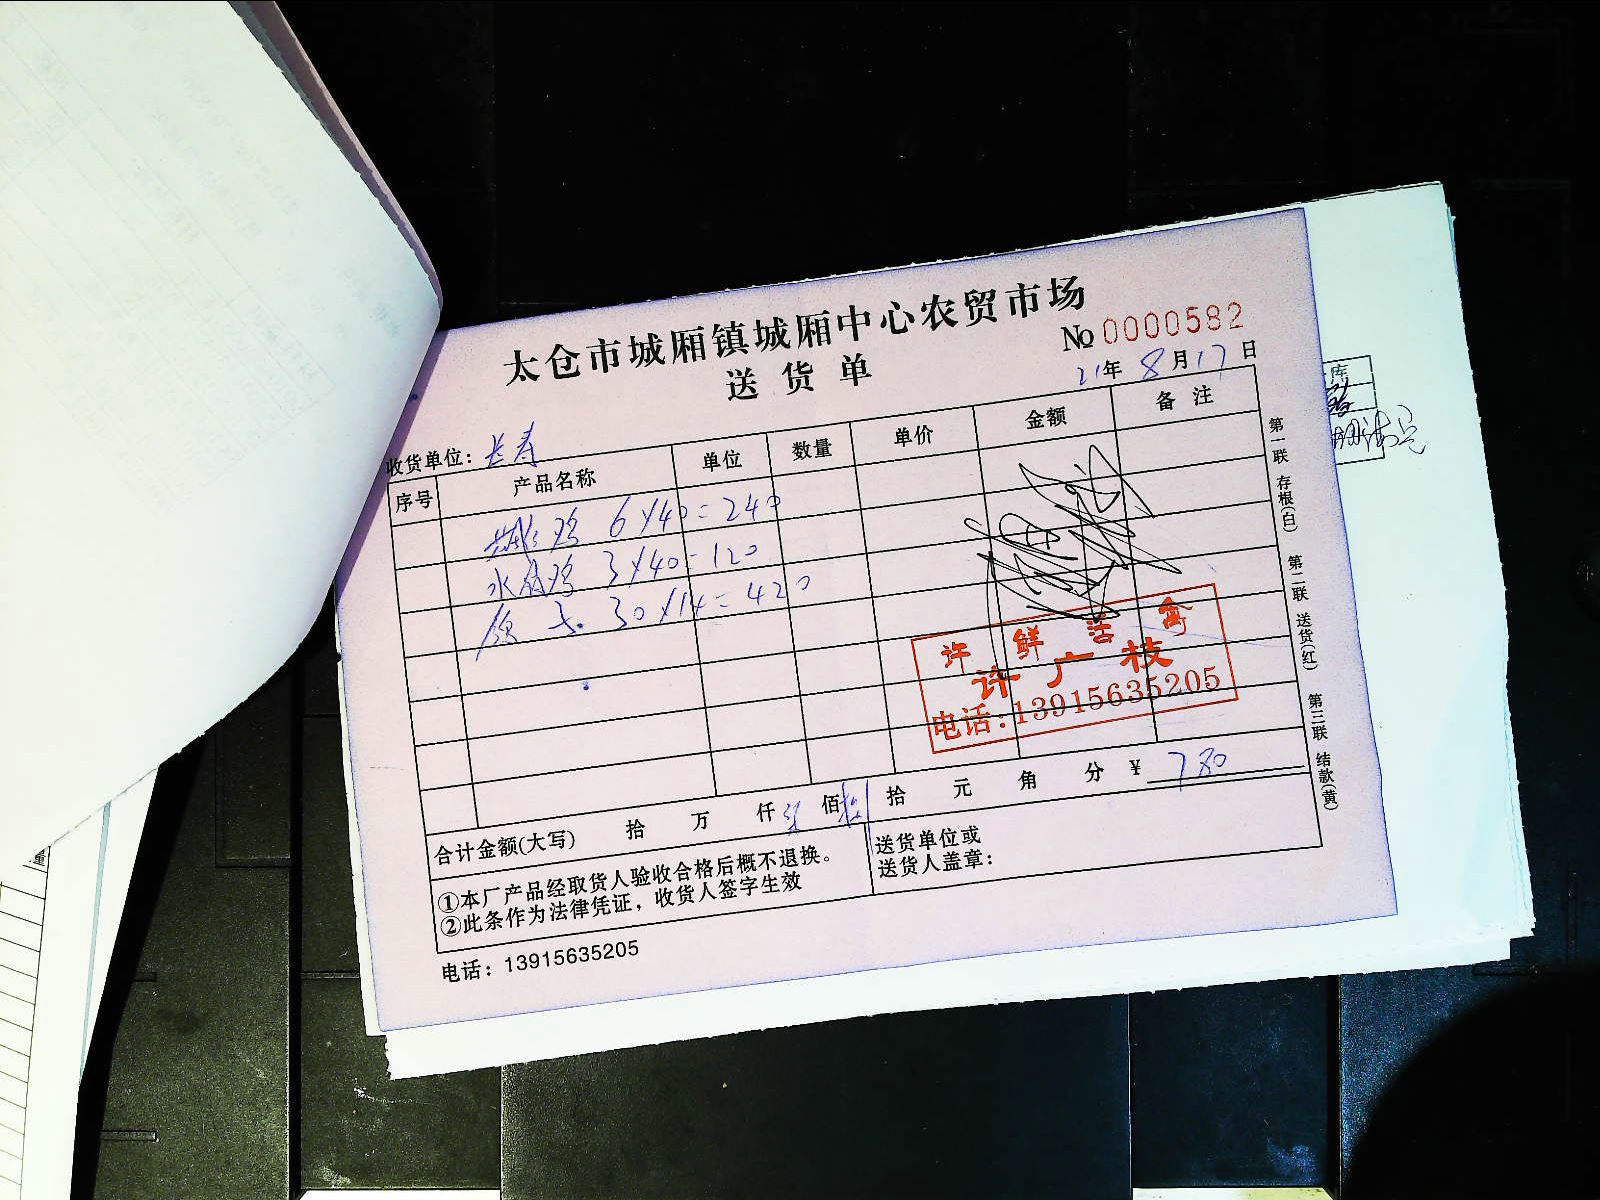 太仓市城厢镇城厢中心农贸市场
送货单
№ 0000582
21年 8月17日
收货单位：长寿
序号 产品名称 单位 数量 单价 金额 备注
鸡 6×40=240
水 鸡 3×40=120
30×14=420
许 鲜 活 禽
许广枝
电话：13915635205
合计金额(大写) 拾 万 仟 柒 佰 捌 拾 元 角 分 ¥ 780
①本厂产品经取货人验收合格后概不退换。
②此条作为法律凭证，收货人签字生效
送货单位或
送货人盖章：
电话：13915635205
第一联 存根(白) 第二联 送货(红) 第三联 结款(黄)
库